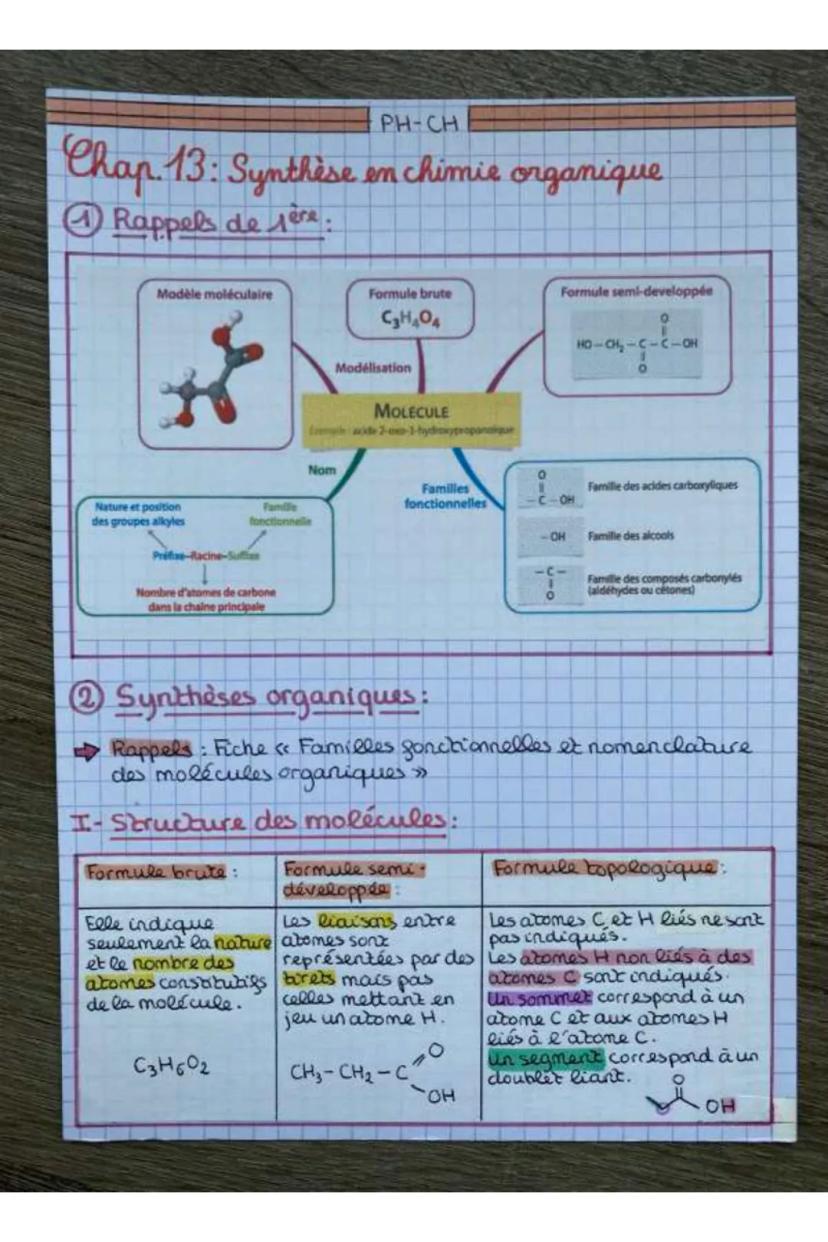 PH-CH
Chap.13: Synthèse en chimie organique
1 Rappels de 1ère :
Modèle moléculaire
Formule brute
C₃H₄O₄
Formule semi-developpée
O
HO-CH₂-C-C-OH
O
Modélisation
MOLÉCULE
Exemple : acide 2-oxo-3-hydroxypropanoïque
Nom
Familles
fonctionnelles
Nature et position
des groupes alkyles
Famille
fonctionnelle
Préfixe-Racine-Suffixe
Nombre d'atomes de carbone
dans la chaîne principale
O
-C-OH
Famille des acides carboxyliques
-OH
Famille des alcools
-C-
O
Famille des composés carbonylés
(aldéhydes ou cétones)
2 Synthèses organiques :
⇨ Rappels : Fiche « Familles fonctionnelles et nomenclature
des molécules organiques »
I- Structure des molécules :
Formule brute :
Elle indique
seulement la nature
et le nombre des
atomes constitutifs
de la molécule.
C₃H₆O₂
Formule semi-
développée :
Les liaisons entre
atomes sont
représentées par des
tirets mais pas
celles mettant en
jeu un atome H.
O
CH₃-CH₂-C
OH
Formule topologique :
Les atomes C et H liés ne sont
pas indiqués.
Les atomes H non liés à des
atomes C sont indiqués.
Un sommet correspond à un
atome C et aux atomes H
liés à l'atome C.
Un segment correspond à un
doublet liant.
O
OH